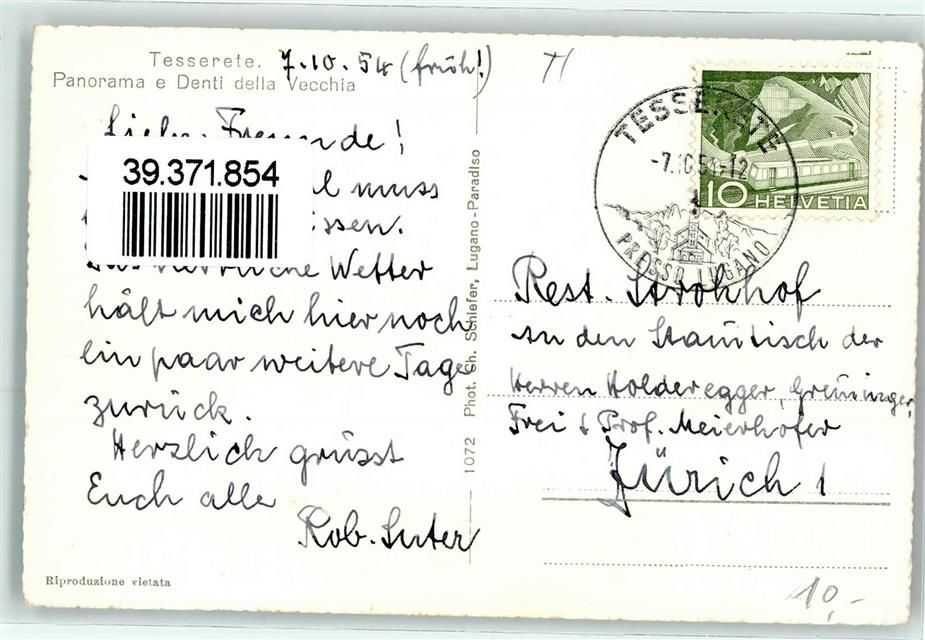 Tesserete. 7.10.54 (früh!)
Panorama e Denti della Vecchia
TI
Liebe Freunde!
39.371.854
muss
issen.
herrliche Wetter
hält mich hier noch
ein paar weitere Tage
zurück.
Herzlich grüsst
Euch alle
Rob. Suter
Riproduzione vietata
1072 Phot. Ch. Schiefer, Lugano-Paradiso
TESSERETE
-7.10.54.-12
PRESSO LUGANO
10 HELVETIA
Rest. Strohhof
an den Stamtisch der
Herren Holderegger, Greuninger,
Frei & Prof. Meierhofer
Zürich 1
10,-